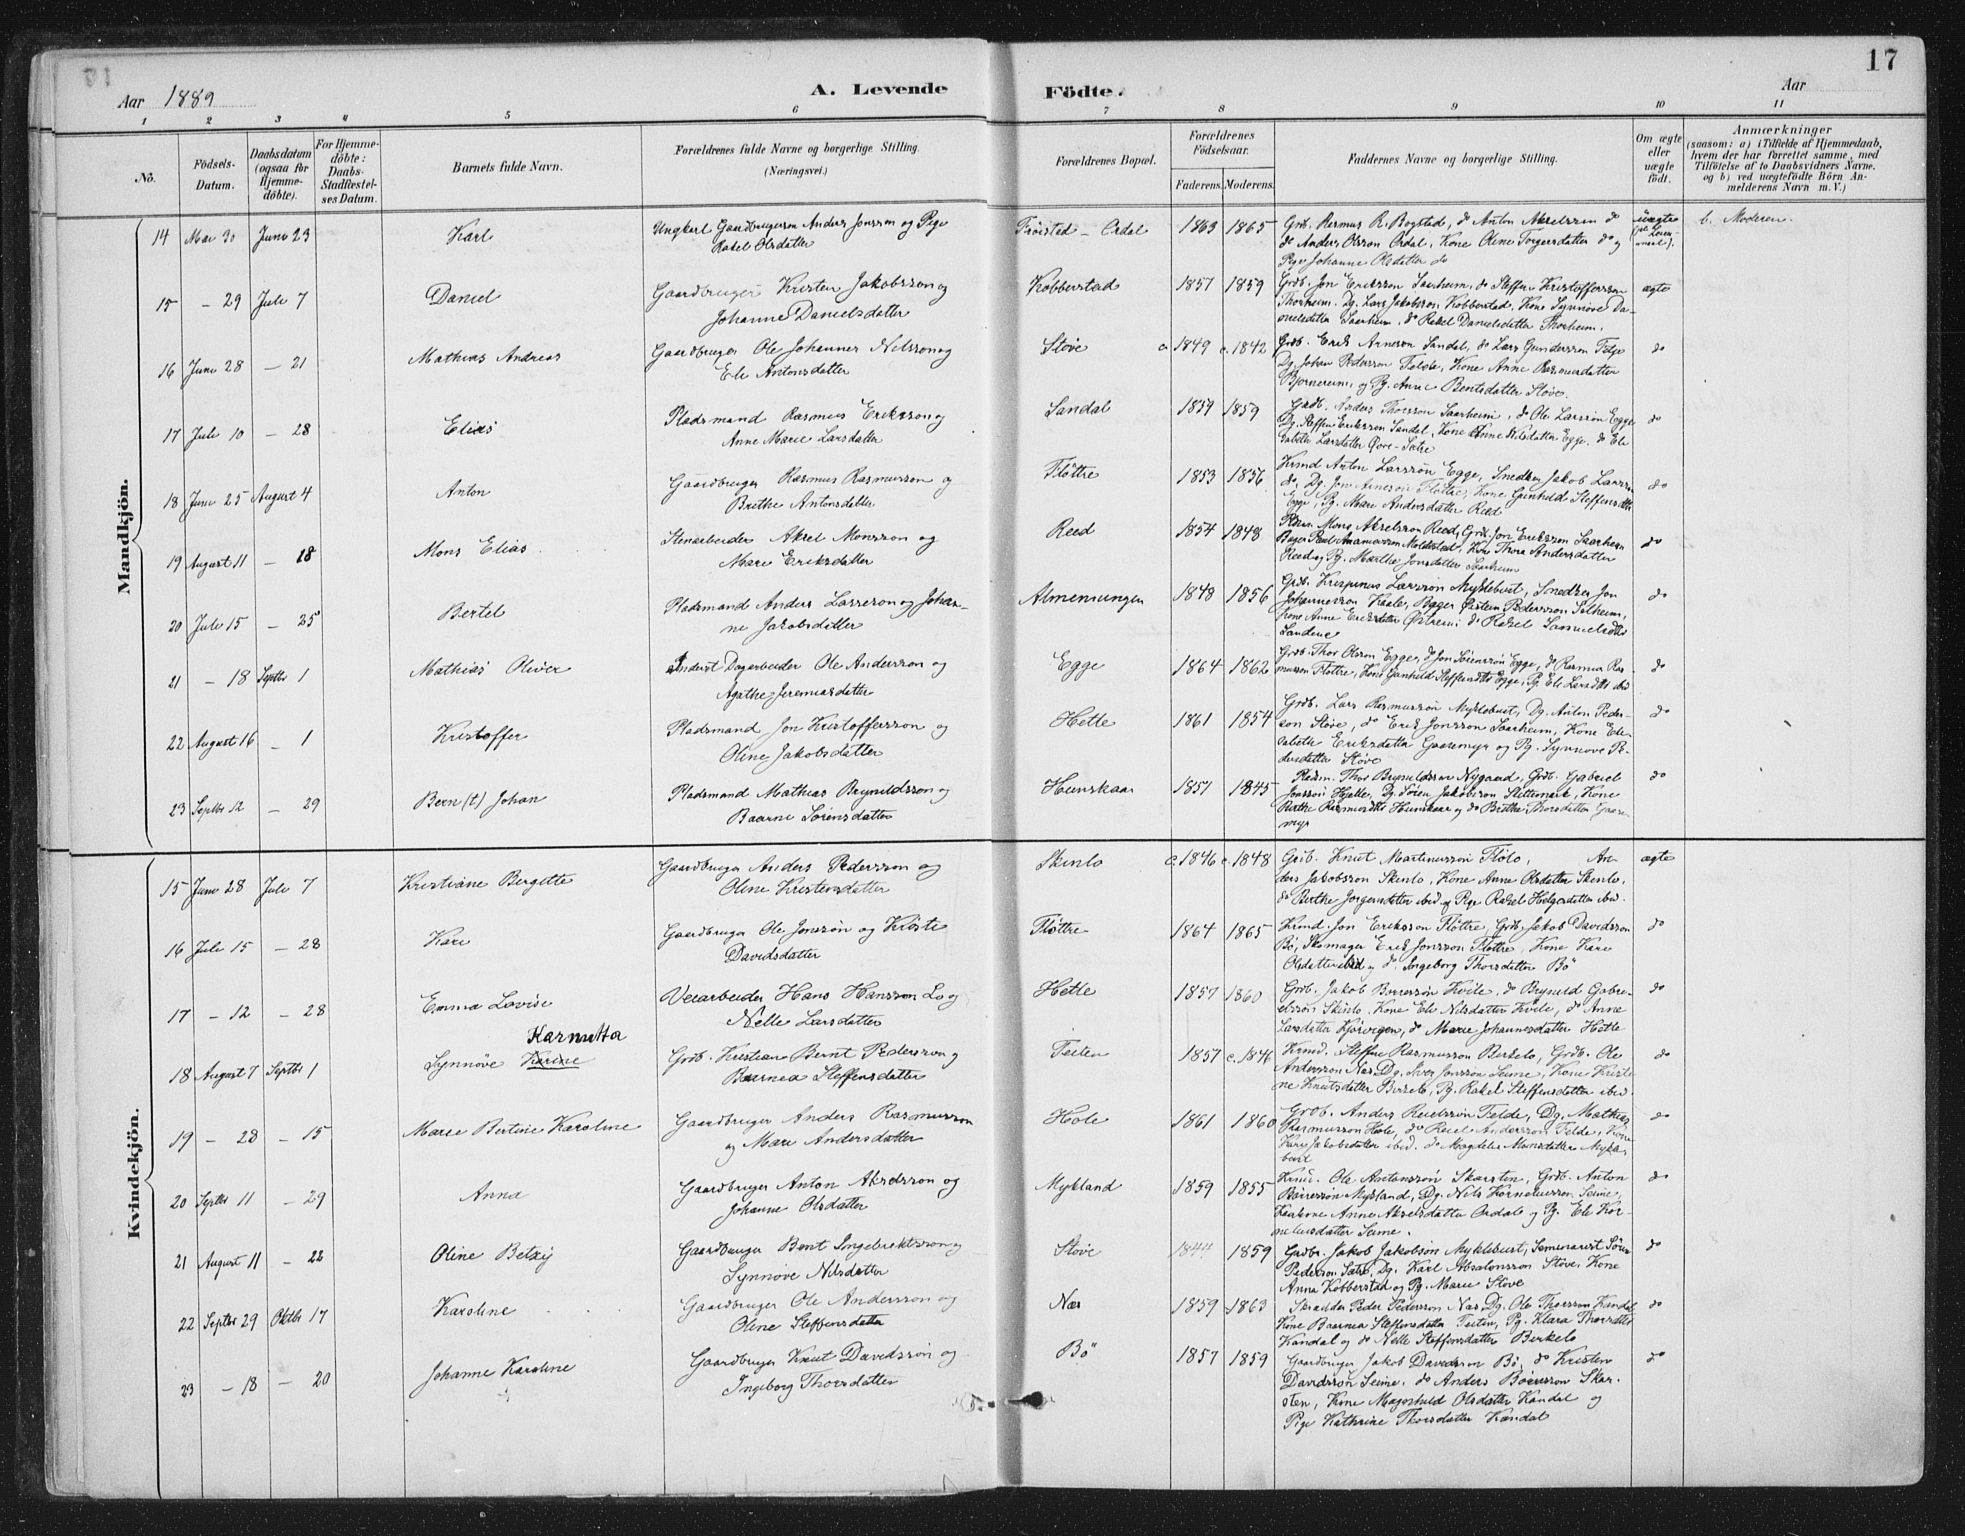 17
Aar 1889
A. Levende
Födte.
Aar
1 2 3 4 5 6 7 8 9 10 11
No.
Födsels-
Datum.
Daabsdatum
(ogsaa for
Hjemme-
döbte).
For Hjemme-
döbte:
Daabs-
Stadfæstel-
ses Datum.
Barnets fulde Navn.
Forældrenes fulde Navne og borgerlige Stilling.
(Næringsvei.)
Forældrenes Bopæl.
Forældrenes
Födselsaar.
Faderens. Moderens.
Faddernes Navne og borgerlige Stilling.
Om ægte
eller
uægte
födt.
Anmærkninger
(saasom: a) i Tilfælde af Hjemmedaab,
hvem der har forrettet samme, med
Tilföielse af to Daabsvidners Navne,
og b) ved uægtefödte Börn An-
melderens Navn m. V.)
Mandkjön.
14 Mai 30 Juni 23 Karl
Ungkarl Gaardbrugersøn Anders Jonsson og Pige
Rakel Olsdatter
1863 1865
Grb. Rasmus R. Bogstad, do Anton Akselsson do
do Anders Olsson Ordal, Kone Oline Torgersdatter do og
Pige Johanne Olsdatter do
uægte
b. Moderen.
15 - 29 Juli 7 Daniel
Gaardbruger Kristen Jakobsson og
Johanne Danielsdatter
Kobberstad 1857 1859
Grdb. Jon Eriksson Saarheim, do Steffen Kristoffersson
Thorheim, Dg. Lars Jakobsson Kobberstad, Kone Synnøve Da-
nielsdatter Saarheim, do Rakel Danielsdatter Thorheim.
ægte
16 Juni 28 - 21 Mathias Andreas
Gaardbruger Ole Johannes Nilsson og
Eli Antonsdatter
Støve c. 1849 c. 1842
Grdb. Erik Arneson Sandal, do Lars Gundersson Felje
Dg. Johan Pedersson Felde, Kone Anne Rasmusdatter
Bjørnereim, og Pg. Anne Bentsdatter Støve.
do
17 Juli 10 - 28 Elias
Pladsmand Rasmus Eriksson og
Anne Marie Larsdatter
Sandal 1859 1859
Grdb. Anders Thorsson Saarheim, do Ole Larsson Egge
Dg. Steffen Eriksson Sandal, Kone Anne Nilsdatter Egge, do Eli-
sabeth Larsdatter Øvre-Sætre
do
18 Juni 25 August 4 Anton
Gaardbruger Rasmus Rasmusson og
Brithe Antonsdatter
Fløttre 1853 1856
Krmd Anton Larssøn Egge, Snedker Jakob Larsson
do, Dg. Jon Arneson Fløttre, Kone Gunhild Steffensdtr
Egge, Pg. Marie Andersdatter Reed
do
19 August 11 - 18 Mons Elias
Stenarbeider Aksel Monsson og
Mari Eriksdatter
Reed 1854 1848
Mons Akselsson Reed, Grdb. Jon Eriksson Saarheim
Bager Paul Ananiasson Moldestad, Kone Thora Andersdatter
Reed og Pg. Marthe Jonsdatter Saarheim
do
20 Juli 15 - 25 Bertel
Pladsmand Anders Larsson og Johan-
ne Jakobsdatter
Almenningen 1848 1856
Grdb. Krispinus Larssøn Myklebust, Snedker Jon
Johannesson Kaale, Bager Øistein Pedersson Solheim,
Kone Anne Eriksdatter Østrem, do Rakel Samuelsdtr
Sandene
do
21 - 18 Septbr 1 Mathias Oliver
Inderst Dagarbeider Ole Andersson og
Agathe Jeremiasdatter
Egge 1864 1862
Grdb. Thor Olsson Egge, do Jon Sørensson Egge, do Rasmus Ras-
musson Fløttre, Kone Gunhild Steffensdtr Egge, Pg. Eli Larsdtr ibid
do
22 August 16 - 1 Kristoffer
Pladsmand Jon Kristoffersson og
Oline Jakobsdatter
Hetle 1861 1854
Grdb. Lars Rasmusson Myklebust, Dg. Anton Peder-
son Støve, do Erik Jonsson Saarheim, Kone Eli-
sabeth Eriksdatter Gaaremyr og Pg. Synnøve Pe-
dersdatter Støve
do
23 Septbr 12 - 29 Bern(t) Johan
Pladsmand Mathias Brynildsson og
Baarne Sørensdatter
Hunskaar 1857 1845
Pladsm. Thor Brynildsson Nygaard, Grdb. Gabriel
Jonsson Hjelle, Dg. Søren Jakobsson Slettemark, Kone
Berthe Rasmusdtr Hunskaar og do Brithe Thorsdatter Gaare-
myr
do
Kvindekjön.
15 Juni 28 Juli 7 Kristiane Bergitte
Gaardbruger Anders Pedersson og
Oline Kristensdatter
Skinlo c. 1846 c. 1848
Grdb. Knut Martinusson Flølo, An-
ders Jakobsson Skinlo, Kone Anne Olsdatter Skinlo,
do Berthe Jørgensdatter ibid og Pige Rakel Helgesdatter ibid.
ægte
16 Juli 15 - 28 Kari
Gaardbruger Ole Jonssøn og Kirsti
Davidsdatter
Fløttre 1864 1865
Krmd. Jon Eriksson Fløttre, Grdb. Jakob Davidsson
Bø, Skomager Erik Jonsson Fløttre, Kone Kari
Olsdatter ibid og do Ingeborg Thorsdatter Bø
do
17 - 12 - 28 Emma Lovise
Veiarbeider Hans Hansson Lo og
Nelle Larsdatter
Hetle 1857 1860
Grdb. Jakob Børresson Kvile, do Brynild Gabri-
elsson Skinlo, Kone Eli Nilsdatter Kvile, do Anne
Larsdatter Kjørvegen, do Marie Johannesdatter Hetle
do
Karnitta
18 August 7 Septbr 1 Synnøve Karine
Grdb. Kristian Bernt Pedersson og
Baarnea Steffensdatter
Teiten 1857 c. 1846
Krmd. Steffen Rasmusson Birkelo, Grdb. Ole
Andersson Næs, Dg. Iver Jonsson Seime, Kone Kristi-
ne Knutsdatter Birkelo, Pg. Rakel Steffensdatter ibid.
do
19 - 28 - 15 Marie Bertine Karoline
Gaardbruger Anders Rasmusson
og Mari Andersdatter
Hole 1861 1860
Grdb. Anders Reielssøn Felde, Dg. Mathias
Rasmusson Hole, do Reiel Andersson Felde, Kone
Kari Jakobsdatter ibid. do Magdeli Monsdatter Mykle-
bust
do
20 Septbr 11 - 29 Anna
Gaardbruger Anton Akselsson og
Johanne Olsdatter
Mykland 1859 1855
Krmd. Ole Antonssøn Skarsten, Grdb. Anton
Børressøn Mykland, Dg. Nils Korneliusson Seime,
Kaarkone Anne Akselsdatter Ordal og Pg. Eli Kor-
neliusdatter Seime.
do
21 August 11 - 22 Oline Betzy
Gaardbruger Bent Ingebriktsson og
Synnøve Nilsdatter
Støve 1844 1859
Grdbr. Jakob Jakobson Myklebust, Seminarist Søren
Pedersson Sætre, Dg. Karl Absalonsson Støve, Kone
Anna Kobberstad og Pg. Marie Støve
do
22 Septbr 29 Oktbr 17 Karoline
Gaardbruger Ole Andersson og
Oline Steffensdatter
Næs 1859 1863
Skrædder Peder Pedersson Næs, Dg. Ole Thorsson Kandal
Kone Baarnea Steffensdatter Teiten, Pg. Klara Thorsdatter
Kandal og do Nelle Steffensdatter Birkelo
do
23 - 18 - 20 Johanne Karoline
Gaardbruger Knut Davidssøn og
Ingeborg Thorsdatter
Bø 1857 1859
Gaardbruger Jakob Davidsson Bø, do Kristen
Davidssøn Seime, do Anders Børresson Skar-
sten, Kone Magnhild Olsdatter Kandal og
Pige Kathrine Thorsdatter Kandal
do